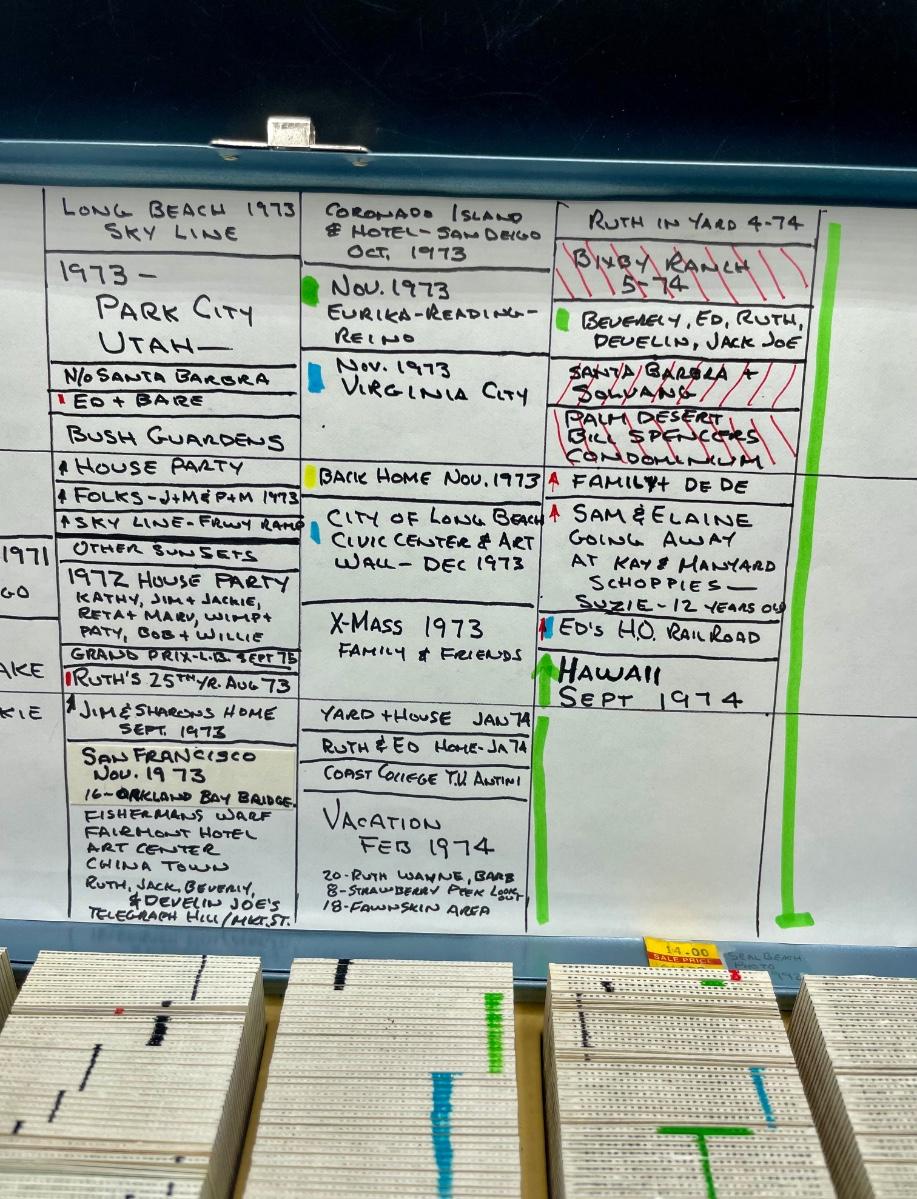 1971
GO
AKE
KIE
LONG BEACH 1973
SKY LINE
1973 -
PARK CITY
UTAH—
N/O SANTA BARBRA
ED + BARE
BUSH GUARDENS
HOUSE PARTY
FOLKS-J+M&P+M 1973
SKY LINE-FRWY RAMP
OTHER SUNSETS
1972 HOUSE PARTY
KATHY, JIM+JACKIE,
RETA+MARV, WIMP+
PATY, BOB+WILLIE
GRAND PRIX-L.B. SEPT 75
RUTH'S 25TH YR. AUG 73
JIM & SHARONS HOME
SEPT. 1973
SAN FRANCISCO
NOV. 1973
16-ORKLAND BAY BRIDGE.
FISHERMANS WARF
FAIRMONT HOTEL
ART CENTER
CHINA TOWN
RUTH, JACK, BEVERLY,
& DEVELIN JOE'S
TELEGRAPH HILL/MKT.ST.
CORONADO ISLAND
& HOTEL-SAN DEIGO
OCT. 1973
NOV. 1973
EURIKA-READING-
REINO
NOV. 1973
VIRGINIA CITY
BACK HOME NOV. 1973
CITY OF LONG BEACH
CIVIC CENTER & ART
WALL - DEC 1973
X-MASS 1973
FAMILY & FRIENDS
YARD + HOUSE JAN 74
RUTH & ED HOME-JA 74
COAST COLLEGE T.V. ANTINI
VACATION
FEB 1974
20-RUTH WAYNE, BARB
8-STRAWBERRY PEEK LOOK OUT
18-FAWNSKIN AREA
RUTH IN YARD 4-74
BIXBY RANCH
5-74
BEVERELY, ED, RUTH,
DEVELIN, JACK JOE
SANTA BARBRA +
SOLVANG
PALM DESERT
BILL SPENCERS
CONDOMINIUM
FAMILY + DE DE
SAM & ELAINE
GOING AWAY
AT KAY & MANYARD
SCHOPPIES—
SUZIE-12 YEARS OLD
ED'S H.O. RAILROAD
HAWAII
SEPT 1974
14.00
SALE PRICE
SEAL BEACH